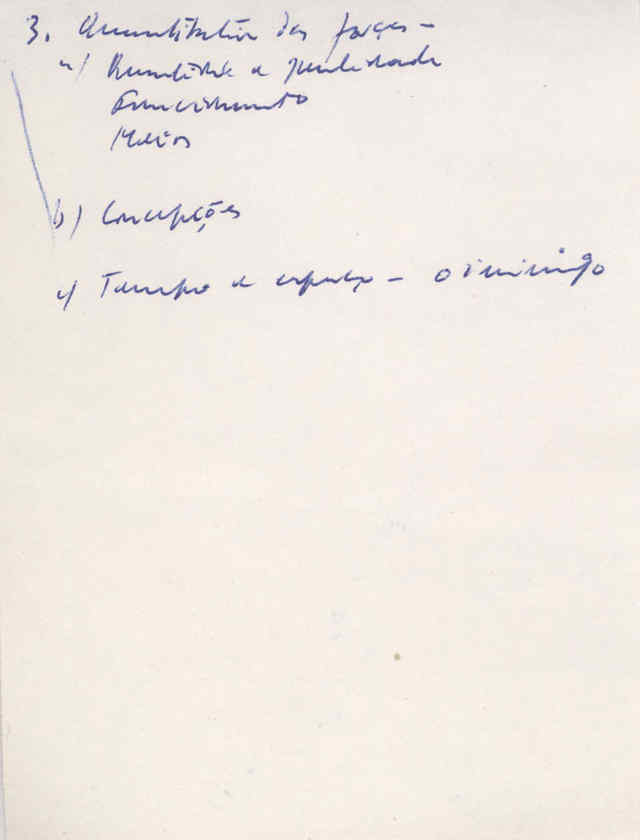 3. Quantitativo das forças –
a) Quantidade e qualidade
Armamento
Meios
b) Concepções
c) Tempo e espaço – o inimigo